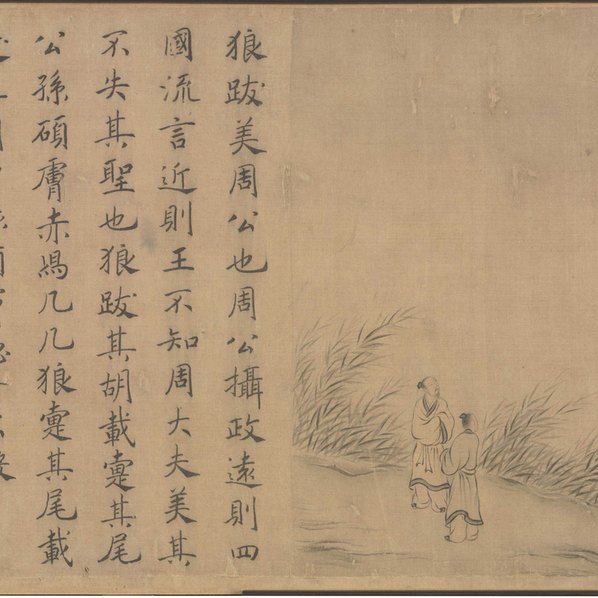 狼跋美周公也周公攝政遠則四
國流言近則王不知周大夫美其
不失其聖也狼跋其胡載疐其尾
公孫碩膚赤舄几几狼疐其尾載